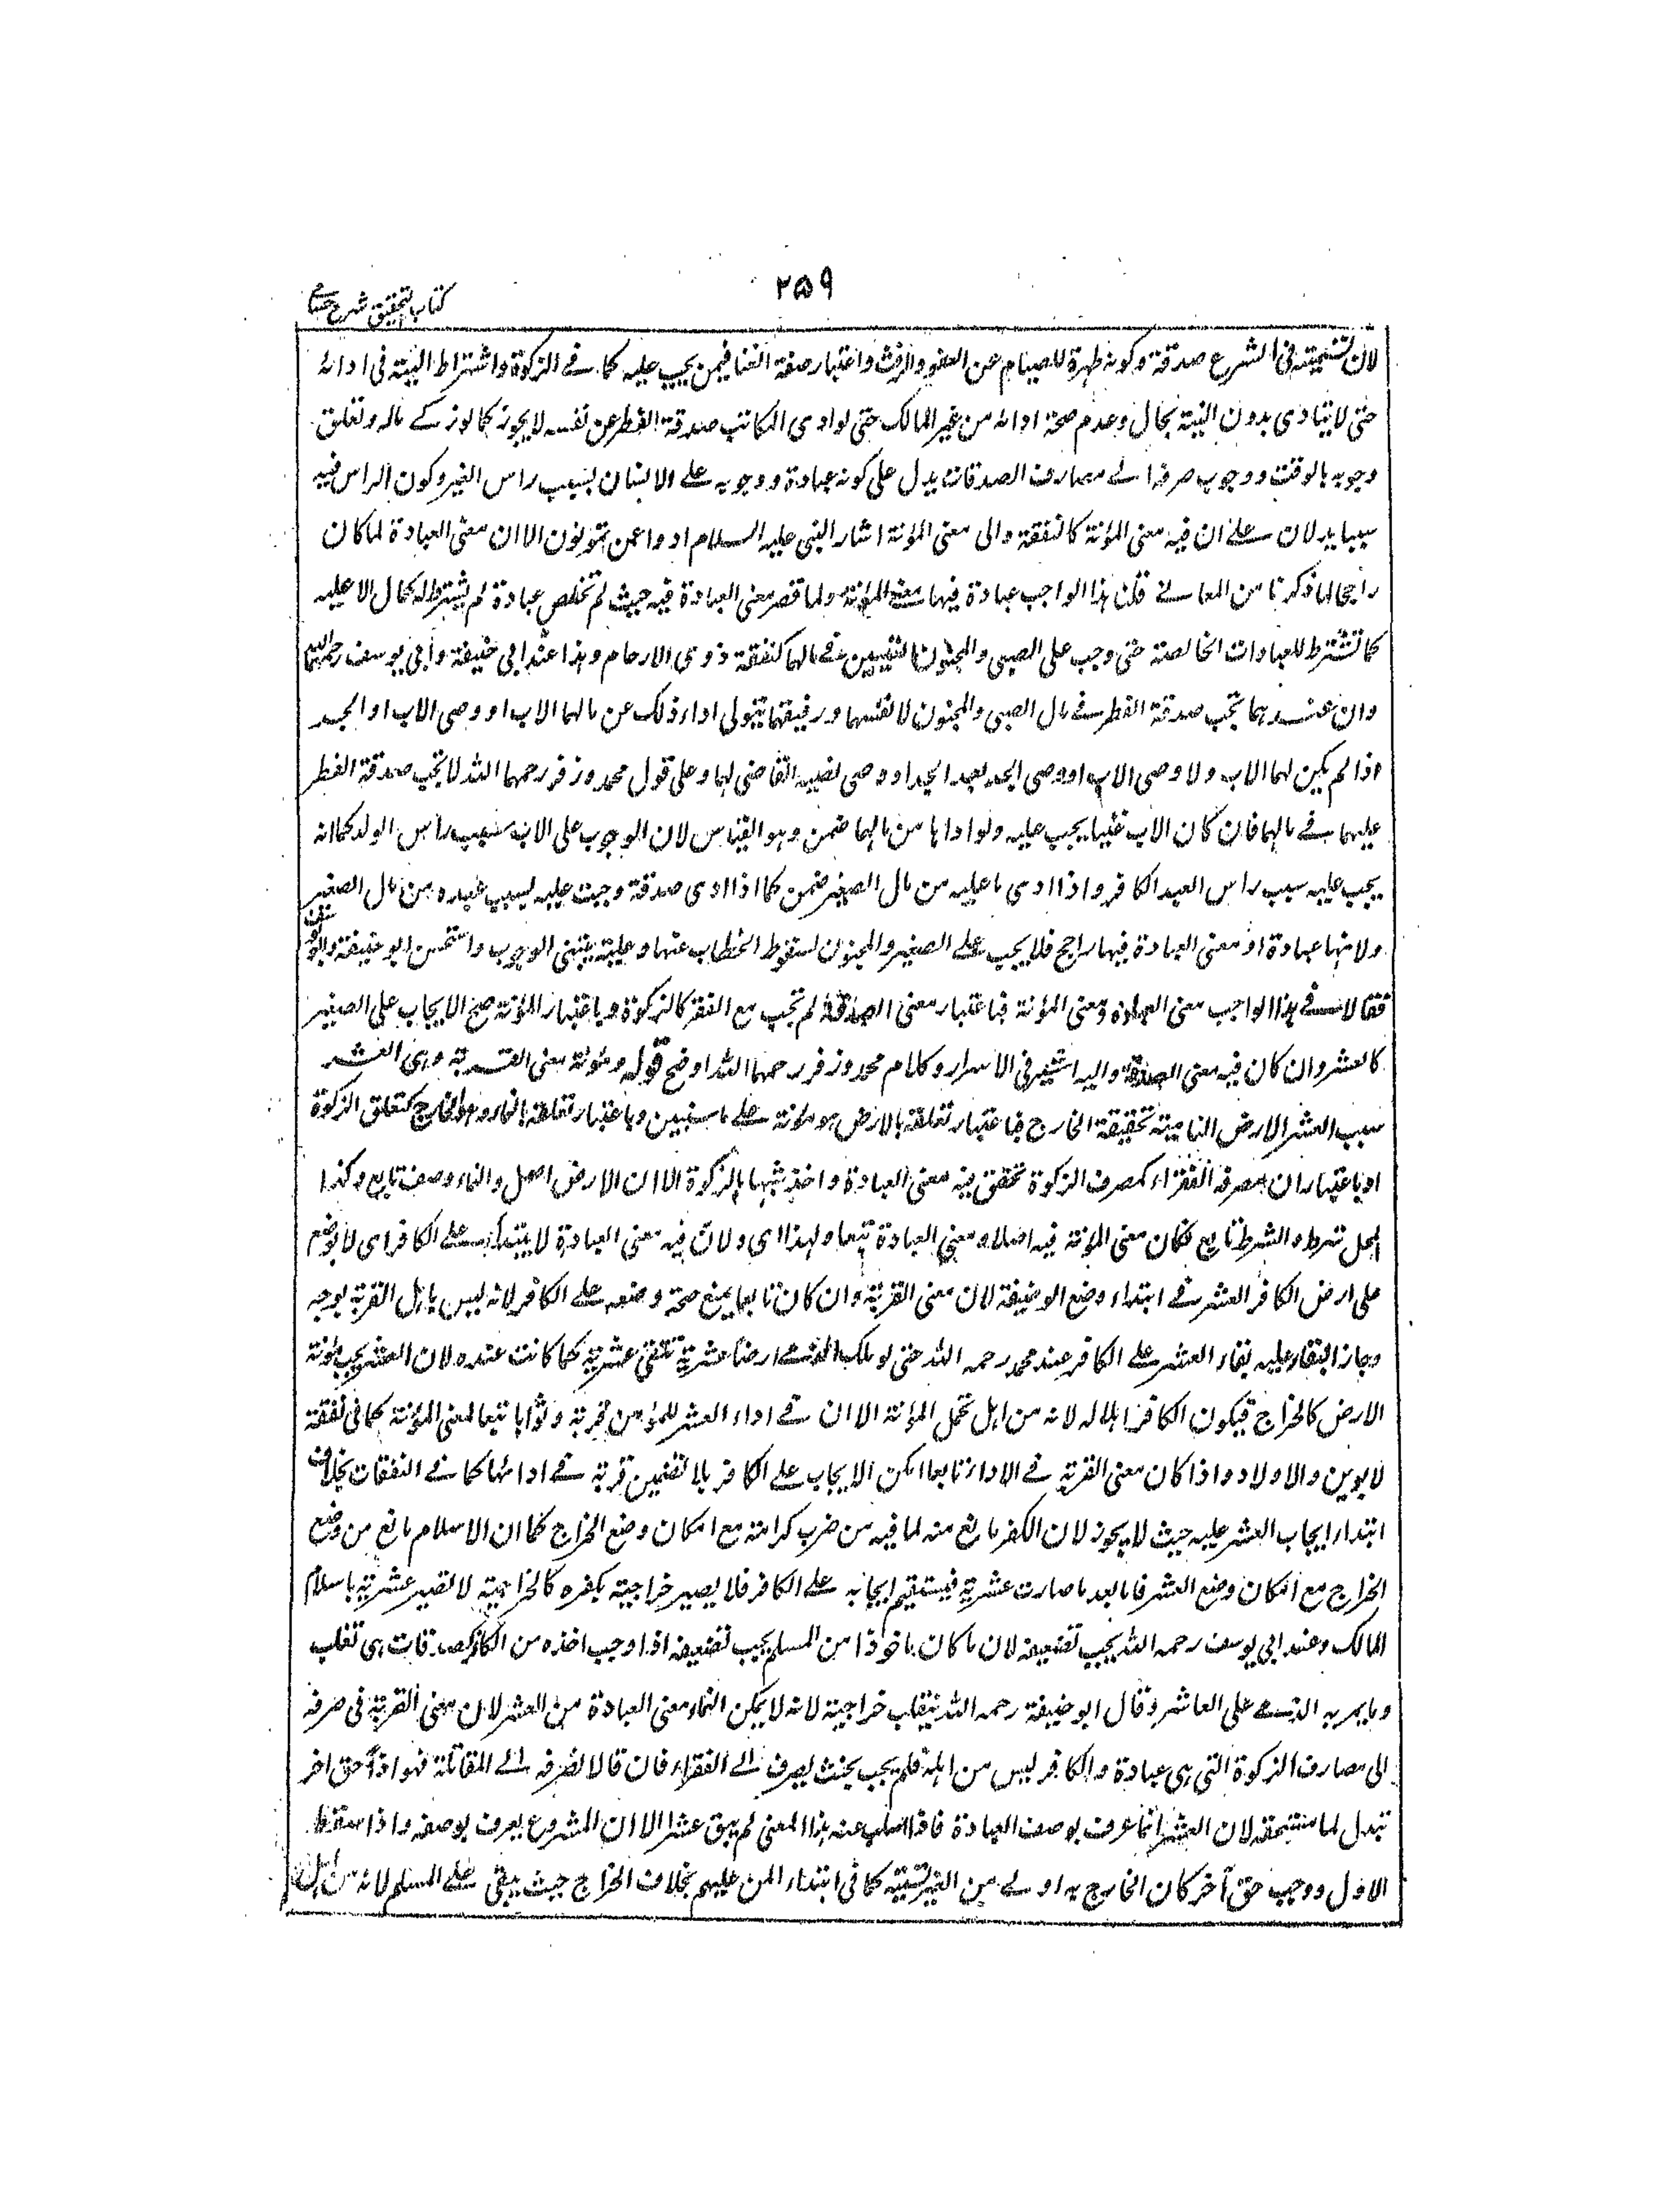 ۲۵۹
كتاب التحقيق شرح حسامي
لان تسميته فى الشرع صدقة وكونه طهرة للصيام عن اللغو والرفث واعتبار صفة الغنا فيمن يجب عليه كما فى الزكوة واشتراط النية فى ادائه
حتى لا يتادى بدون النية بحال وعدم صحة ادائه من غير المالك حتى لو ادى المكاتب صدقة الفطر عن نفسه لا يجوز كما لو زكے ماله وتعلق
وجوبه بالوقت ووجوب صرفه الى مصارف الصدقات يدل على كونه عبادة ووجوبه على الانسان بسبب راس الغير وكون الراس فيه
سببا يدلان على ان فيه معنى المؤنة كالنفقة والى معنى المؤنة اشار النبى عليه السلام ادوا عمن تمونون الا ان معنى العبادة لما كان
راجحا لما ذكرنا من المعانى قلنا هذا الواجب عبادة فيها معنى المؤنة ولما قصر معنى العبادة فيه حيث لم تخلص عبادة لم يشترط له كمال الاهلية
كما تشترط للعبادات الخالصة حتى وجب على الصبى والمجنون الغنيين فى مالهما كنفقة ذوى الارحام وهذا عند ابى حنيفة وابى يوسف رحمهما الله
وان عندهما تجب صدقة الفطر فى مال الصبى والمجنون لانفسهما ورقيقهما يتولى اداء ذلك عن مالهما الاب او وصى الاب او الجد
اذا لم يكن لهما الاب ولا وصى الاب او وصى الجد بعد الجد او وصى نصبه القاضى لهما وعلى قول محمد وزفر رحمهما الله لا تجب صدقة الفطر
عليهما فى مالهما فان كان الاب غنيا يجب عليه ولو اداها من مالهما ضمن وهو القياس لان الوجوب على الاب بسبب راس الولد كما انه
يجب عليه بسبب راس العبد الكافر واذا ادى ما عليه من مال الصغير ضمن كما اذا ادى صدقة وجبت عليه بسبب عبده من مال الصغير
ولانها عبادة او معنى العبادة فيها راجح فلا يجب على الصغير والمجنون لسقوط الخطاب عنهما وعليه يبتنى الوجوب واستحسن ابو حنيفة وابو يوسف
فقالا فى هذا الواجب معنى العبادة ومعنى المؤنة فباعتبار معنى الصدقة لم تجب مع الفقر كالزكوة وباعتبار المؤنة صح الايجاب على الصغير
كالعشر وان كان فيه معنى الصدقة واليه اشير فى الاسرار وكلام محمد وزفر رحمهما الله اوضح قوله ومؤنة معنى القربة وهى العشر
سبب العشر الارض النامية بحقيقة الخارج فباعتبار تعلقه بالارض هو مؤنة على ما سنبين وباعتبار تعلقه بالنماء وهو الخارج كتعلق الزكوة
او باعتبار ان مصرفه الفقراء كمصرف الزكوة تحقق فيه معنى العبادة واخذ شبها بالزكوة الا ان الارض اصل والنماء وصف تابع وكذا
المحل شرط والشرط تابع فكان معنى المؤنة فيه اصلا ومعنى العبادة تبعا ولهذا اى ولان فيه معنى العبادة لا يبتدأ على الكافر اى لا يوضع
على ارض الكافر العشر فى ابتداء وضع الوظيفة لان معنى القربة وان كان تابعا يمنع صحة وضعه على الكافر لانه ليس باهل القربة بوجه
وجاز البقاء عليه بقاء العشر على الكافر عند محمد رحمه الله حتى لو ملك الذمى ارضا عشرية تبقى عشرية كما كانت عنده لان العشر يجب مؤنة
الارض كالخراج فيكون الكافر اهلا له لانه من اهل تحمل المؤنة الا ان فى اداء العشر للمؤمن قربة وثوابا تبعا لمعنى المؤنة كما فى نفقة
لابوين والاولاد واذا كان معنى القربة فى الاداء تابعا امكن الايجاب على الكافر بلا تضمين قربة فى ادائها كما فى النفقات بخلاف
ابتداء ايجاب العشر عليه حيث لا يجوز لان الكفر مانع منه لما فيه من ضرب كرامة مع امكان وضع الخراج كما ان الاسلام مانع من وضع
الخراج مع امكان وضع العشر فاما بعد ما صارت عشرية فيستقيم ايجابه على الكافر فلا يصير خراجية بكفره كالخراجية لا تصير عشرية باسلام
المالك وعند ابى يوسف رحمه الله يجب تضعيفه لان ما كان ماخوذا من المسلم يجب تضعيفه اذا وجب اخذه من الكافر كصدقات بنى تغلب
وما يمر به الذمى على العاشر وقال ابو حنيفة رحمه الله ينقلب خراجية لانه لا يمكن الغاء معنى العبادة من العشر لان معنى القربة فى صرفه
الى مصارف الزكوة التى هى عبادة والكافر ليس من اهله فلم يجب بحيث يصرف الى الفقراء فان قالا نصرفه الى المقاتلة فهو اذا حق اخر
تبدل لمستحقه لان العشر انما عرف بوصف العبادة فاذا سلب عنه هذا المعنى لم يبق عشرا الا ان المشروع يعرف بوصفه واذا سقط
الاول ووجب حق آخر كان الخارج به اولى من كما فى ابتداء المن عليهم بخلاف الخراج حيث يبقى على المسلم لانه من اهل